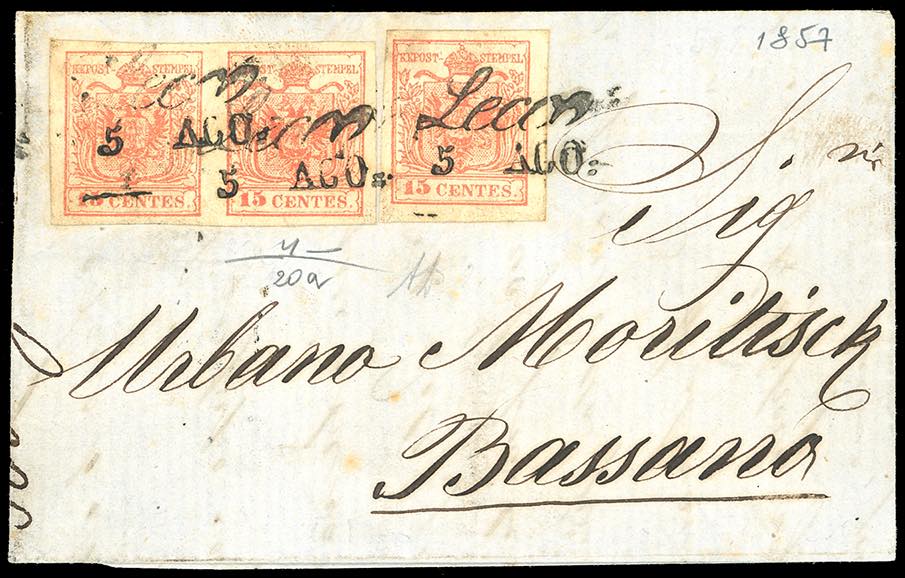 1857
KKPOST- STEMPEL KKPOST- STEMPEL KKPOST- STEMPEL
Lecco Lecco Lecco
5 AGO. 5 AGO. 5 AGO.
15 CENTES. 15 CENTES. 15 CENTES.
Sig
20a
Urbano Moritisck
Bassano